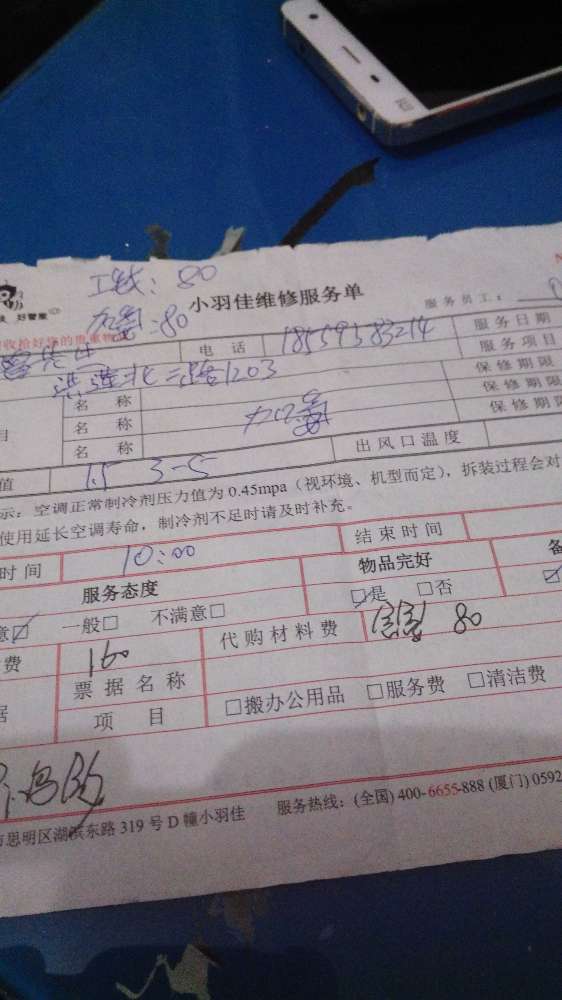 工钱：80
好管家
小羽佳维修服务单
服务员工：
加氟：80
收拾好您的贵重物
电 话 18559583214 服务日期
莲北二路1203 服务项目
名 称 保修期限
目 名 称 加氟 保修期限
名 称 保修期限
值 1.5 3-5 出风口温度
示：空调正常制冷剂压力值为0.45mpa（视环境、机型而定），拆装过程会对
使用延长空调寿命，制冷剂不足时请及时补充。
时间 10:00 结束时间
服务态度 物品完好 备
意☑ 一般□ 不满意□ ☑是 □否
费 160 代购材料费 80
据 票据名称
项 目 □搬办公用品 □服务费 □清洁费
市思明区湖滨东路319号D幢小羽佳 服务热线：(全国) 400-6655-888 (厦门) 0592